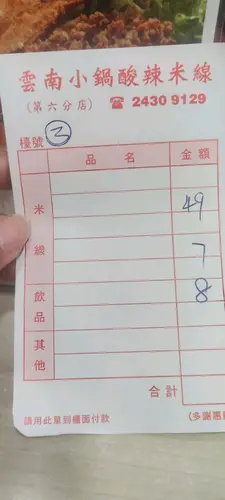 雲南小鍋酸辣米線
(第六分店) ☎ 2430 9129
檯號 3
品 名 金 額
米 49
線 7
飲 8
品
其
他
合 計
請用此單到櫃面付款 (多謝惠